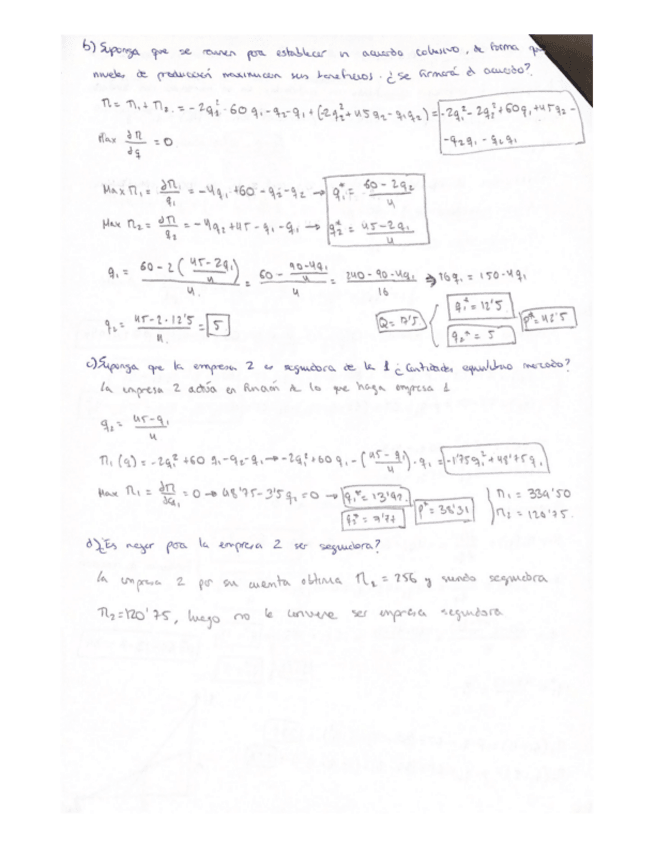 b) Suponga que se reunen para establecer un acuerdo colusivo, de forma que
niveles de producción maximicen sus beneficios. ¿Se firmará el acuerdo?
π = π₁ + π₂ = -2q₂² · 60q₁ - q₂ - q₁ + (-2q₂² + 45q₂ - q₁q₂) = -2q₁² - 2q₂² + 60q₁ + 45q₂ -
- q₂q₁ - q₂q₁
Max ∂π/∂q = 0
Max π₁ = ∂π₁/q₁ = -4q₁ + 60 - q₂ - q₂ → q₁* = (60 - 2q₂)/4
Max π₂ = ∂π/q₂ = -4q₂ + 45 - q₁ - q₁ → q₂* = (45 - 2q₁)/4
q₁ = (60 - 2((45 - 2q₁)/4))/4 = (60 - (90 - 4q₁)/4)/4 = (240 - 90 - 4q₁)/16 → 16q₁ = 150 - 4q₁
q₂ = (45 - 2·12'5)/4 = 5
Q = 17'5 { q₁* = 12'5 p* = 42'5
q₂* = 5
c) Suponga que la empresa 2 es seguidora de la 1 ¿Cantidades equilibrio mercado?
La empresa 2 actúa en función de lo que haga empresa 1
q₂ = (45 - q₁)/4
π₁(q) = -2q₁² + 60q₁ - q₂ - q₁ → -2q₁² + 60q₁ - ((45 - q₁)/4) · q₁ = -1'75q₁² + 48'75q₁
Max π₁ = ∂π/∂q₁ = 0 → 48'75 - 3'5q₂ = 0 → q₁* = 13'92 p* = 38'31 π₁ = 339'50
q₂* = 7'77 π₂ = 120'75.
d) ¿Es mejor para la empresa 2 ser seguidora?
La empresa 2 por su cuenta obtiene π₂ = 256 y siendo seguidora
π₂ = 120'75, luego no le conviene ser empresa seguidora